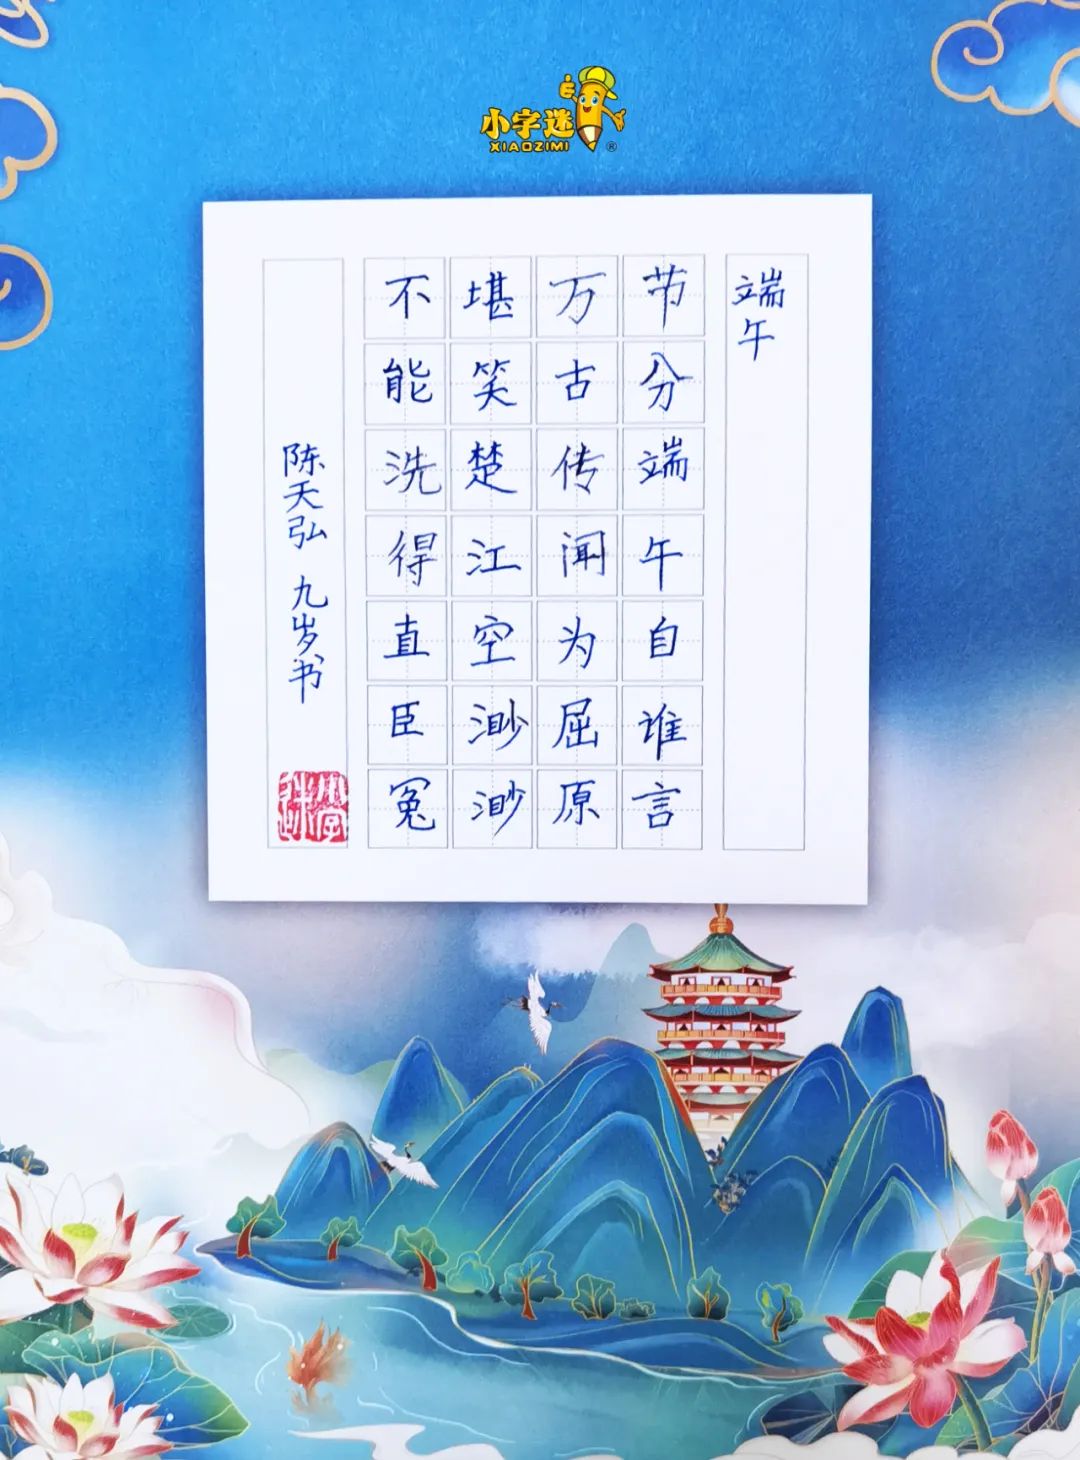 小字迷
XIAOZIMI ®
端午
节分端午自谁言
万古传闻为屈原
堪笑楚江空渺渺
不能洗得直臣冤
陈天弘 九岁书
小字迷